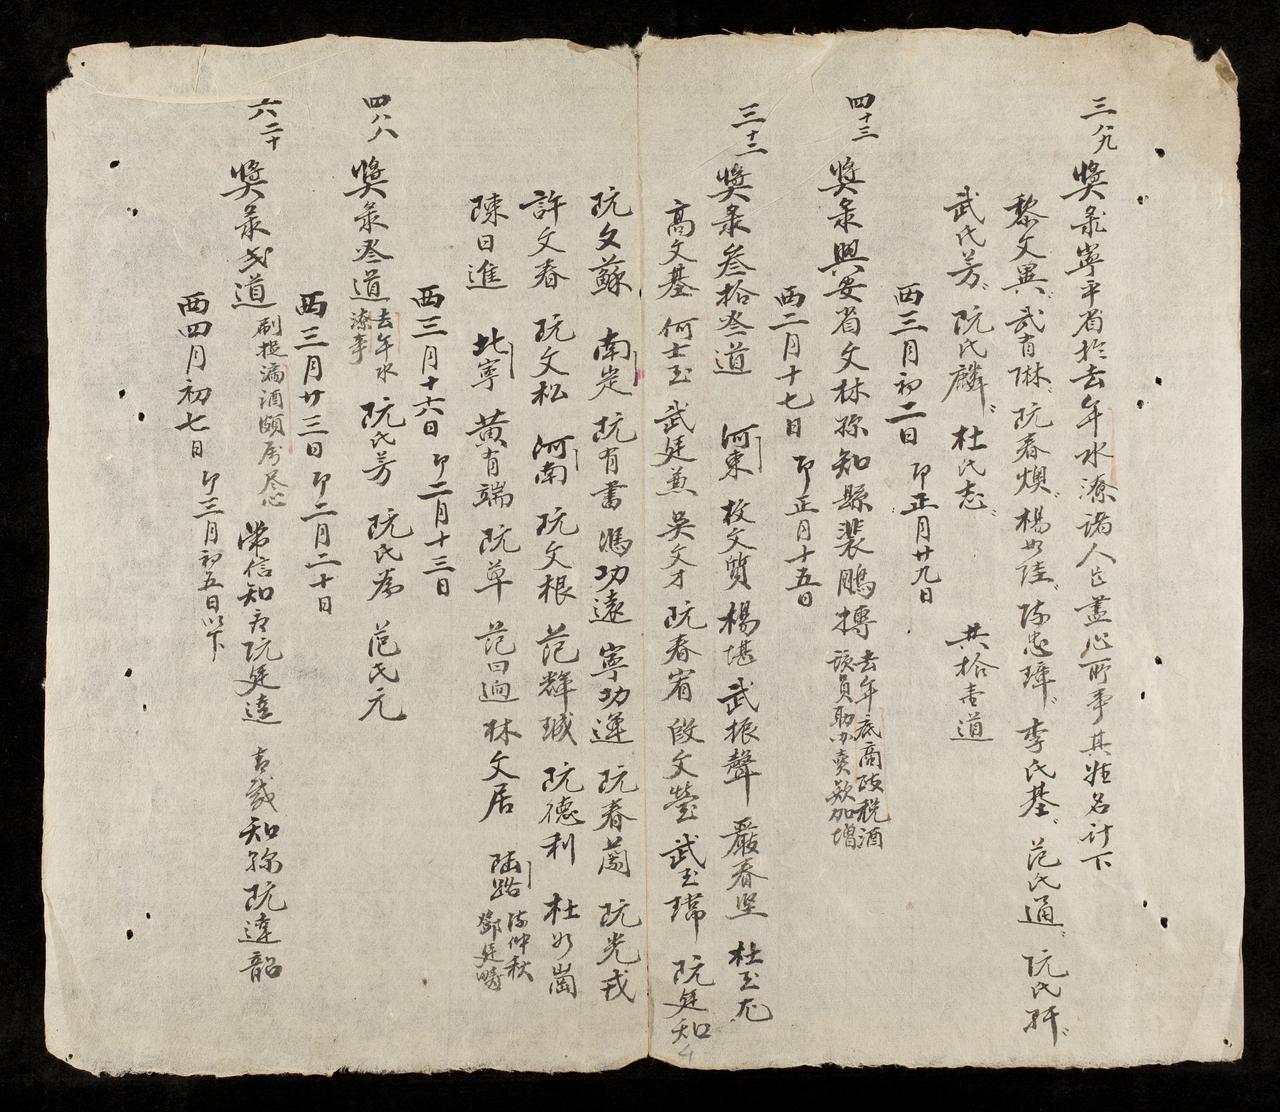 三八九
獎彔寧平省於去年水潦諸人民盡心所事其姓名計下
黎文異 武有琳 阮春燠 楊如 陳忠璋 李氏基 范氏通 阮氏
武氏芳 阮氏麟 杜氏志 共拾壹道
西三月初二日 卬正月廿九日
四十三
獎彔興安省文林孫知縣裴鵬摶 去年底商政稅酒
該員助办賣欵加增
西二月十七日 卬正月十五日
三十二
獎彔叁拾叁道 河東 枚文質 楊堪 武振聲 嚴春坚 杜玉
高文基 何士玉 武廷兼 吳文才 阮春省 段文瑩 武玉瑋 阮廷知
阮文蘇 南定 阮有書 馮功遠 寧功運 阮春蘭 阮光戎
許文春 阮文松 河南 阮文根 范輝珹 阮德利 杜如崗
陳日進 北寧 黃有端 阮草 范曰逈 林文居 陸路 陳仲秋
鄧廷疇
西三月十六日 卬二月十三日
四八八
獎彔叁道 去年水
潦事 阮氏芳 阮氏 范氏元
西三月廿三日 卬二月二十日
六二十
獎彔弍道 刷捉漏酒頗房尽心 常信知府阮廷達 知孫阮達韶
西四月初七日 卬三月初五日以下